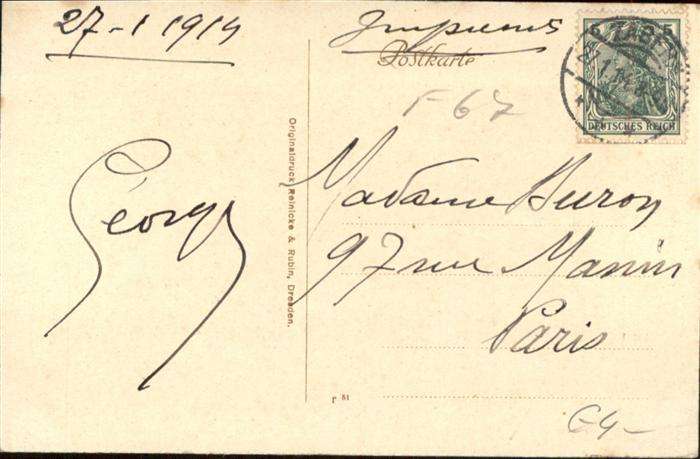 27-1 1914
Imprimés
Postkarte
DEUTSCHES REICH
F 67
Georges
Originaldruck Reinicke & Rubin, Dresden.
Madame Huron
97 rue Manin
Paris
r 81
G4-